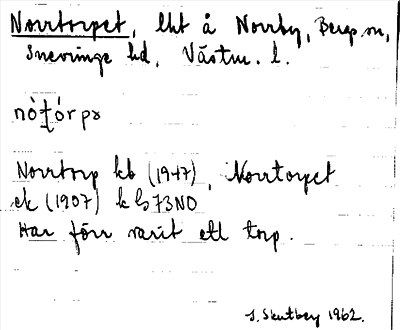 Norrtorpet, lht å Norrby, Bergs sn,
Snevringe hd, Västm. l.
nòtórpə
Norrtorp kb (1947), Norrtorpet
ek (1907) k G 73NO
Har förr varit ett torp.
S. Skutberg 1962.